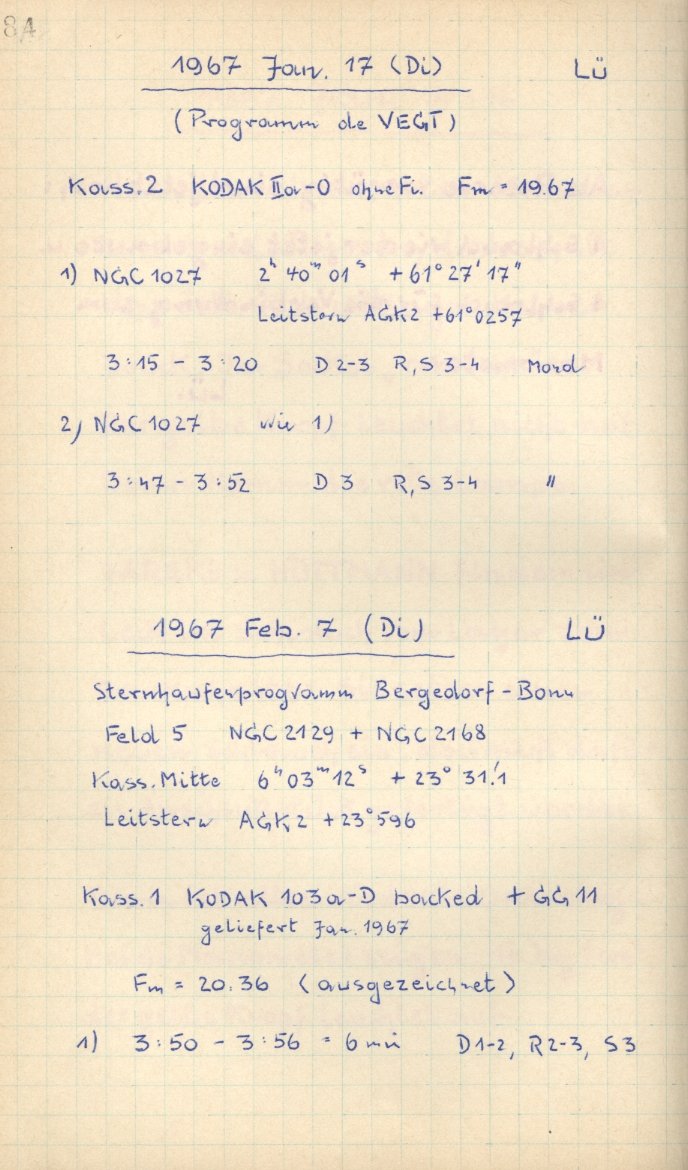 84
1967 Jan. 17 (Di) LÜ
(Programm de VEGT)
Kass. 2 KODAK IIa-O ohne Fi. Fm = 19.67
1) NGC 1027 2ʰ 40ᵐ 01ˢ +61° 27' 17"
Leitstern AGK2 +61°0257
3:15 - 3:20 D 2-3 R,S 3-4 Mond
2) NGC 1027 wie 1)
3:47 - 3:52 D 3 R,S 3-4 "
1967 Feb. 7 (Di) LÜ
Sternhaufenprogramm Bergedorf - Bonn
Feld 5 NGC 2129 + NGC 2168
Kass. Mitte 6ʰ 03ᵐ 12ˢ +23° 31!1
Leitstern AGK2 +23°596
Kass. 1 KODAK 103a-D backed + GG 11
geliefert Jan. 1967
Fm = 20.36 (ausgezeichnet)
1) 3:50 - 3:56 = 6 min D 1-2, R 2-3, S 3